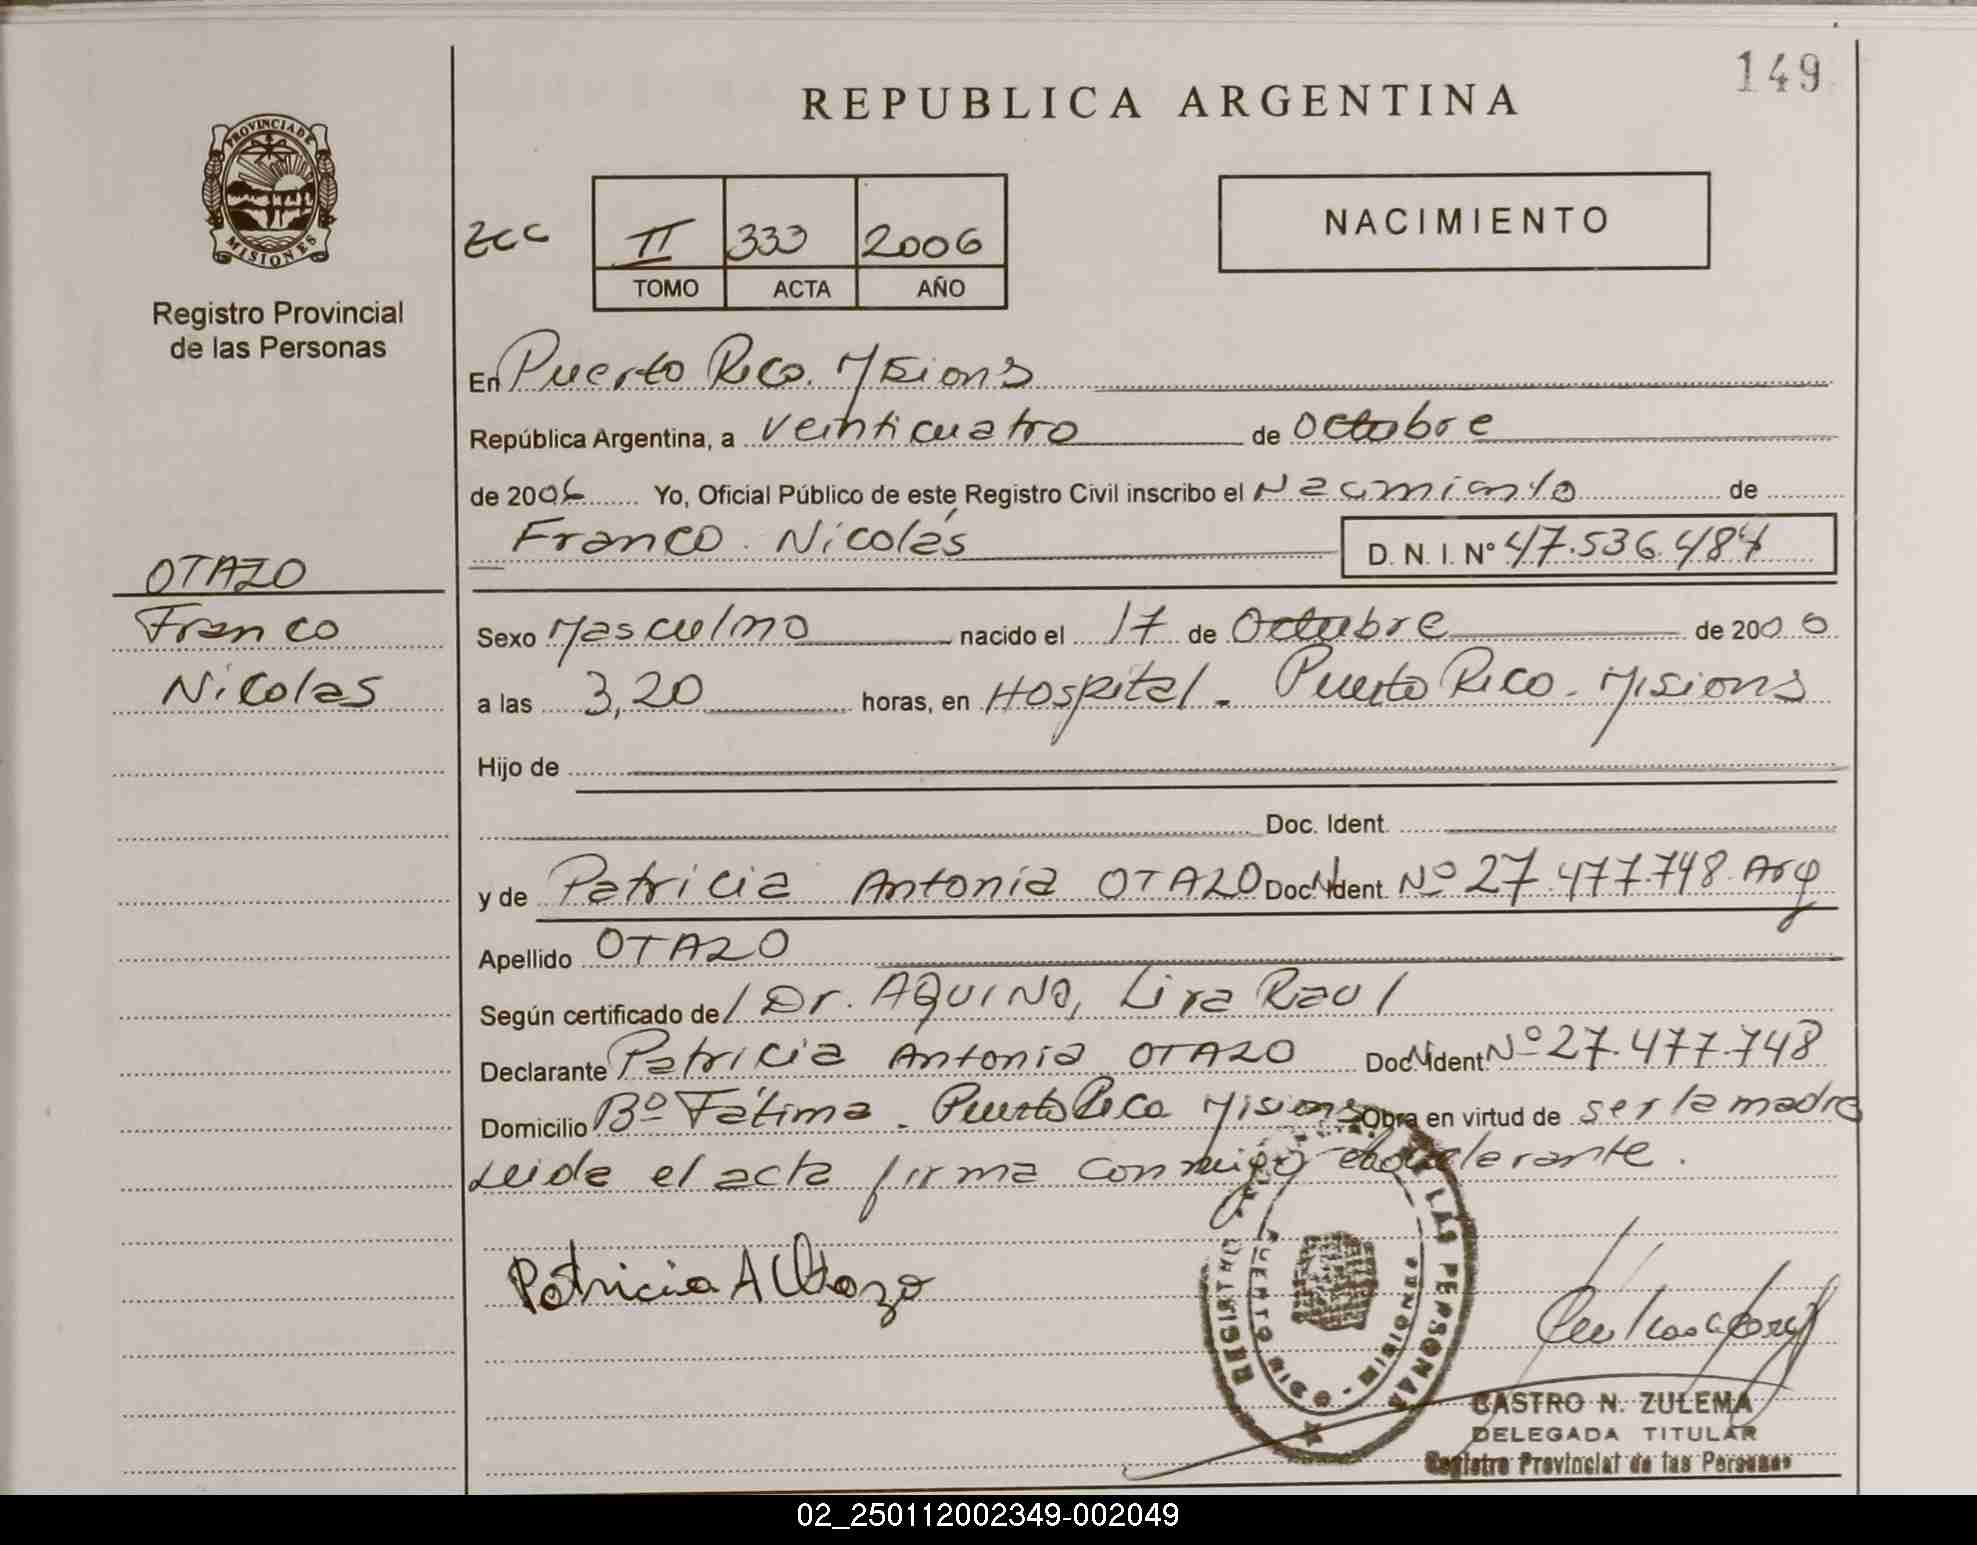 149
REPUBLICA ARGENTINA
PROVINCIA DE
MISIONES
Registro Provincial
de las Personas
II 333 2006
TOMO ACTA AÑO
NACIMIENTO
En Puerto Rico. Misiones
República Argentina, a veinticuatro de Octubre
de 2006 Yo, Oficial Público de este Registro Civil inscribo el Nacimiento de
Franco Nicolás D. N. I. Nº 47.536.484
OTAZO
Franco
Nicolas
Sexo Masculino nacido el 17 de Octubre de 2006
a las 3,20 horas, en Hospital - Puerto Rico - Misiones
Hijo de
Doc. Ident.
y de Patricia Antonia OTAZO Doc. Ident. Nº 27.477.748 Arg
Apellido OTAZO
Según certificado del Dr. AQUINO, Raul
Declarante Patricia Antonia OTAZO Doc. Ident. Nº 27.477.748
Domicilio Bº Fátima - Puerto Rico Misiones Obra en virtud de ser la madre
Leida el acta firma conmigo declarante.
Patricia A Otazo
REGISTRO LAS PERSONAS
PUERTO RICO - MISIONES
CASTRO N. ZULEMA
DELEGADA TITULAR
Registro Provincial de las Personas
02_250112002349-002049